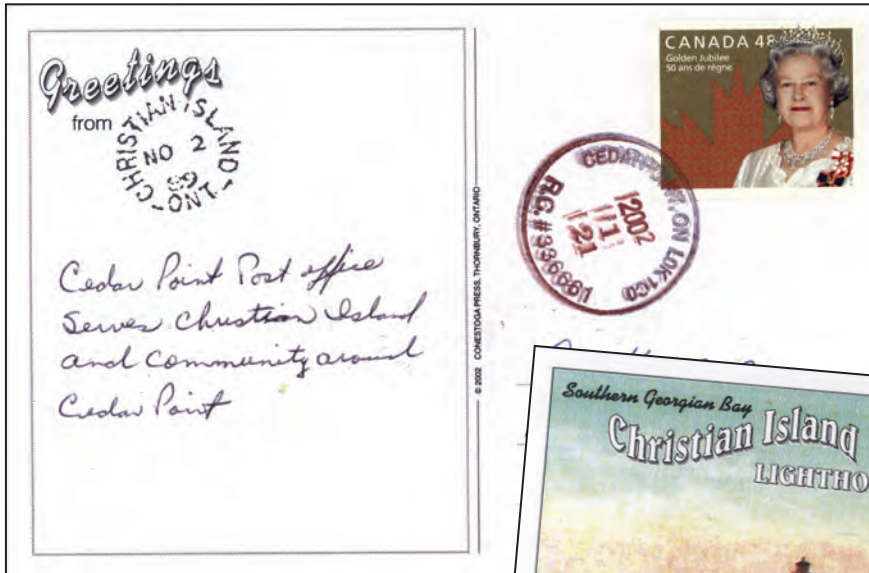 Greetings
from
CHRISTIAN ISLAND
NO 2
89
ONT.
Cedar Point Post office
Serves Christian Island
and community around
Cedar Point
© 2002 CONESTOGA PRESS, THORNBURY, ONTARIO
CANADA 48
Golden Jubilee
50 ans de règne
CEDAR POINT, ON L0K1C0
2002
11
21
R.C. #336661
Southern Georgian Bay
Christian Island
LIGHTHO